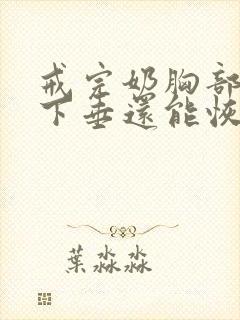 戒完奶胸部
下垂還能恢
葉淼淼